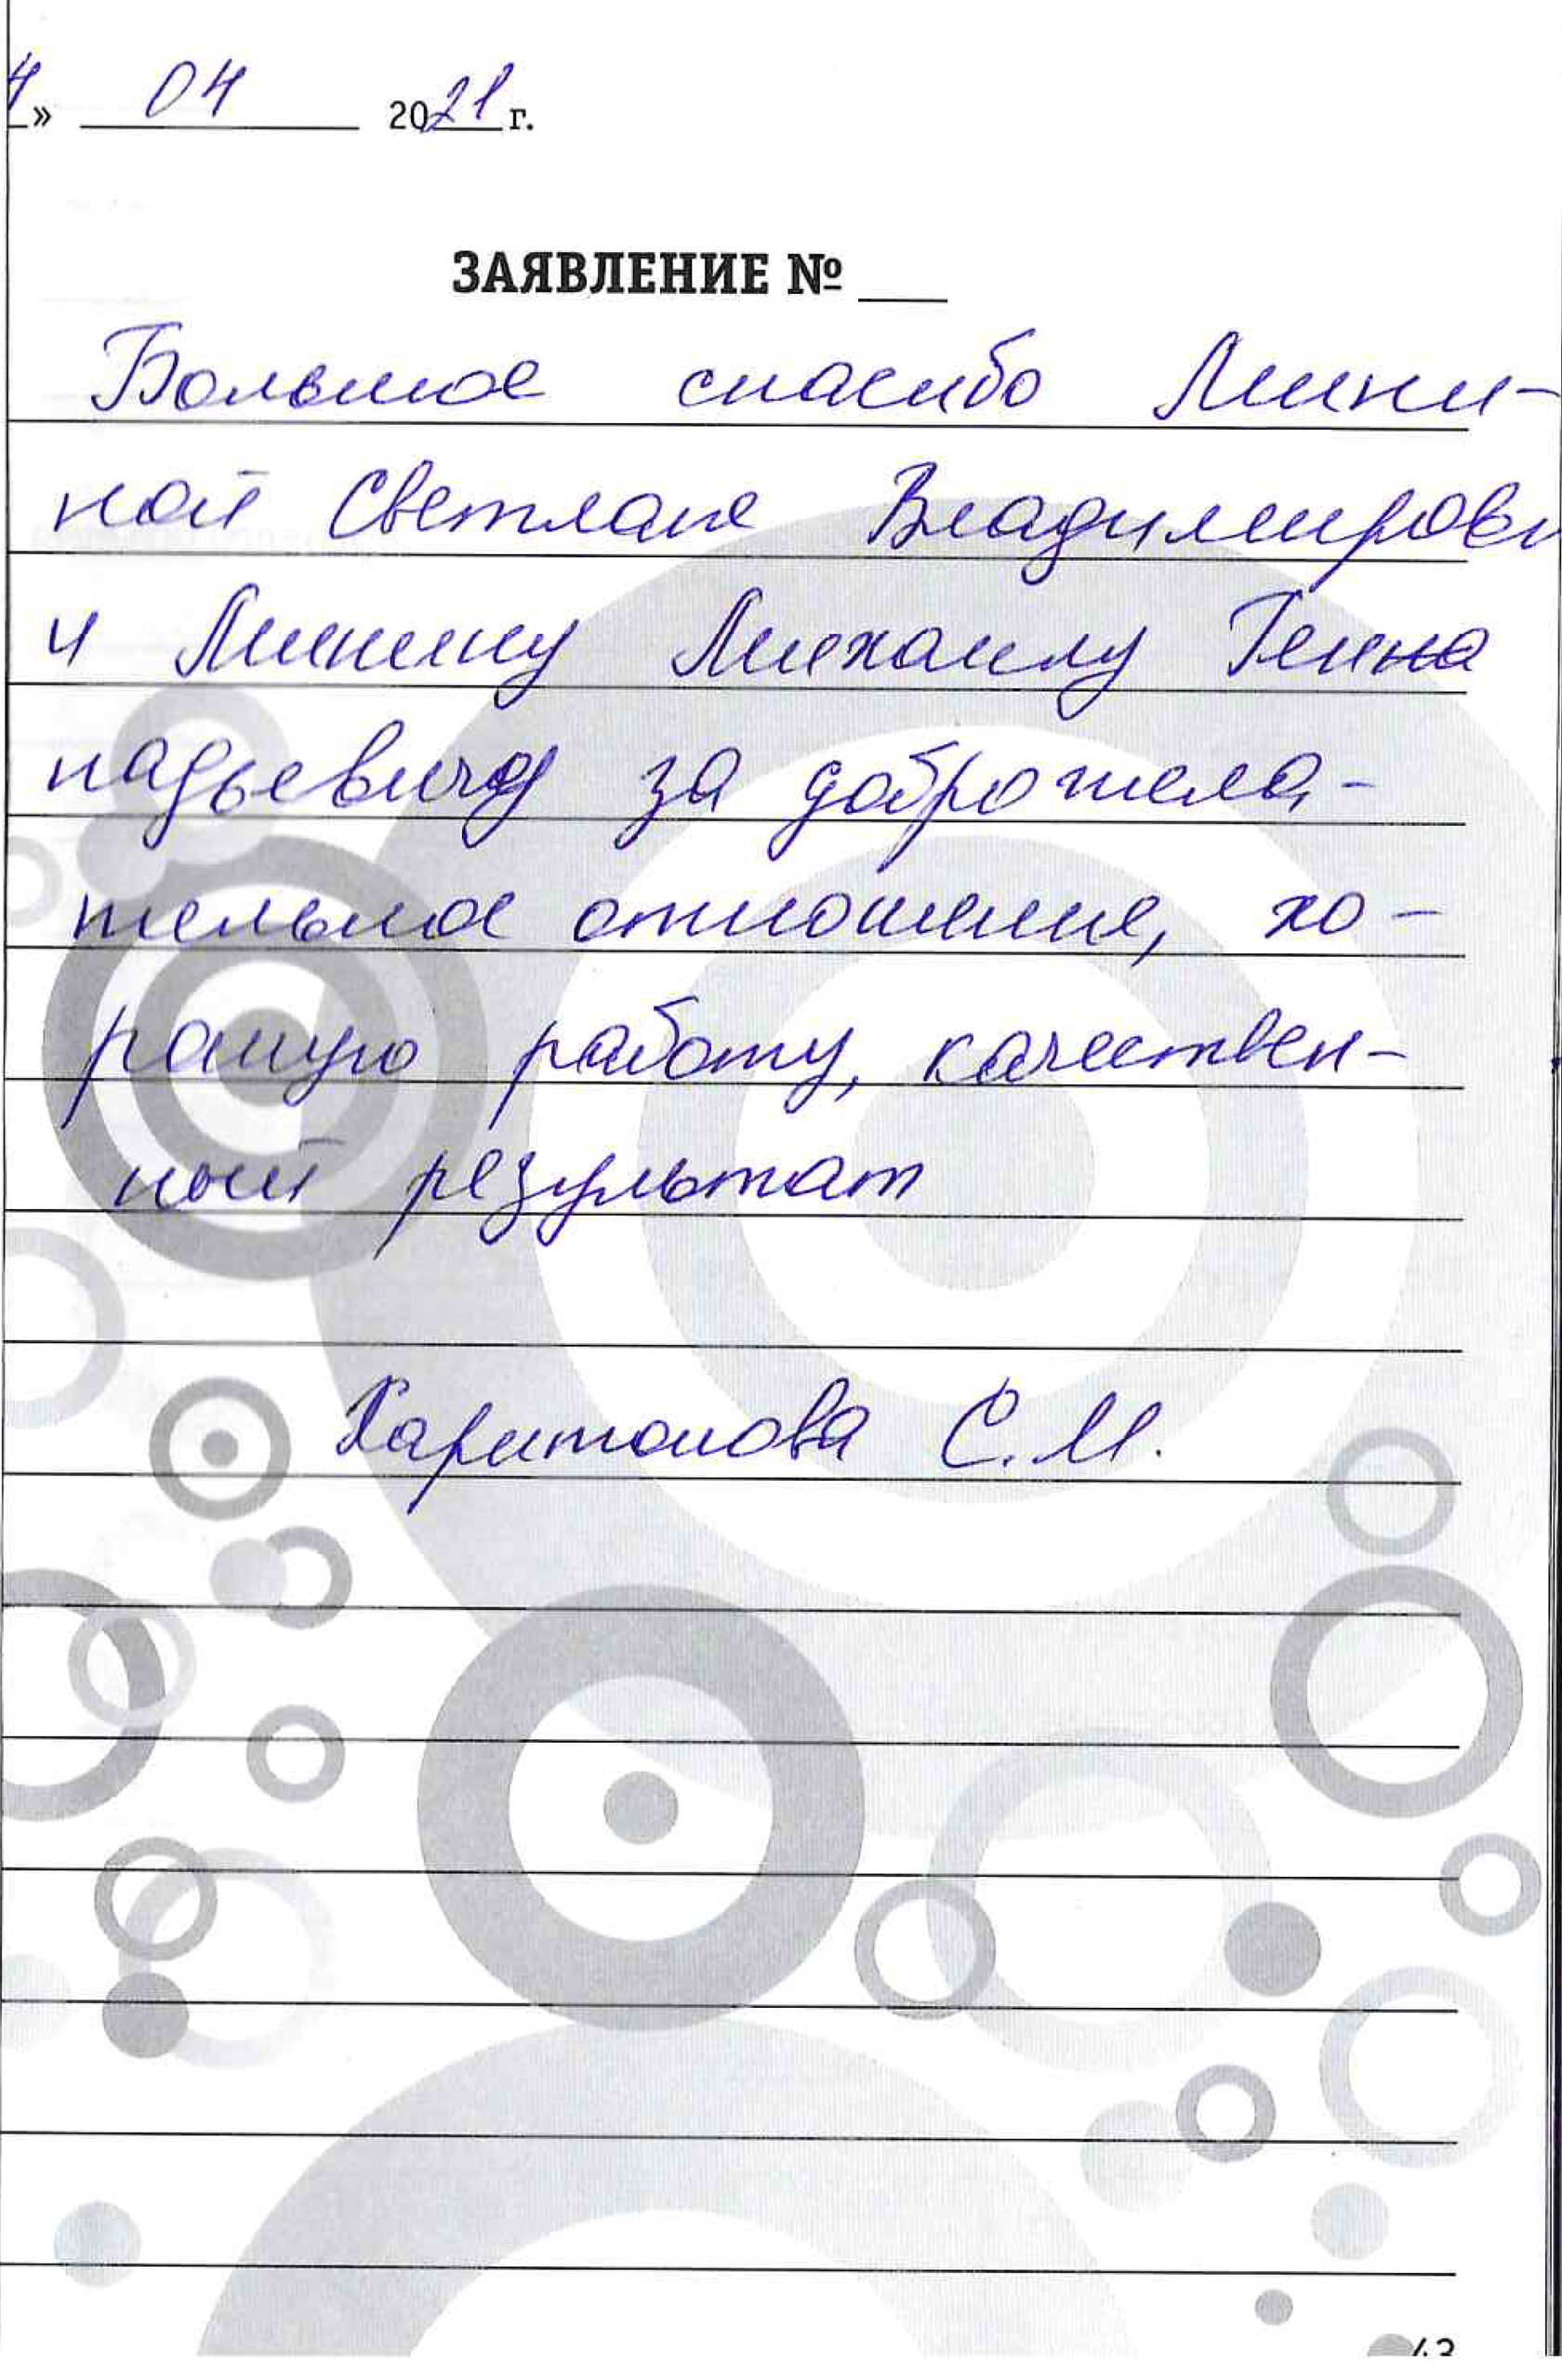 4» 04 2021 г.
ЗАЯВЛЕНИЕ № ___
Большое спасибо Мини-
ной Светлане Владимировн
и Минину Михаилу Генна
надьевичу за доброжела-
тельное отношение, хо-
рошую работу, качествен-
ный результат
Харитонова С.М.
43